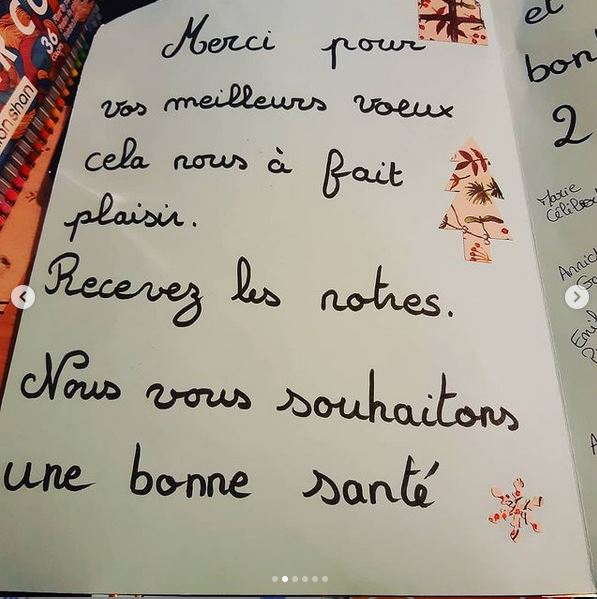 Merci pour
vos meilleurs voeux
cela nous à fait
plaisir.
Recevez les notres.
Nous vous souhaitons
une bonne santé
et
2
Marie
36